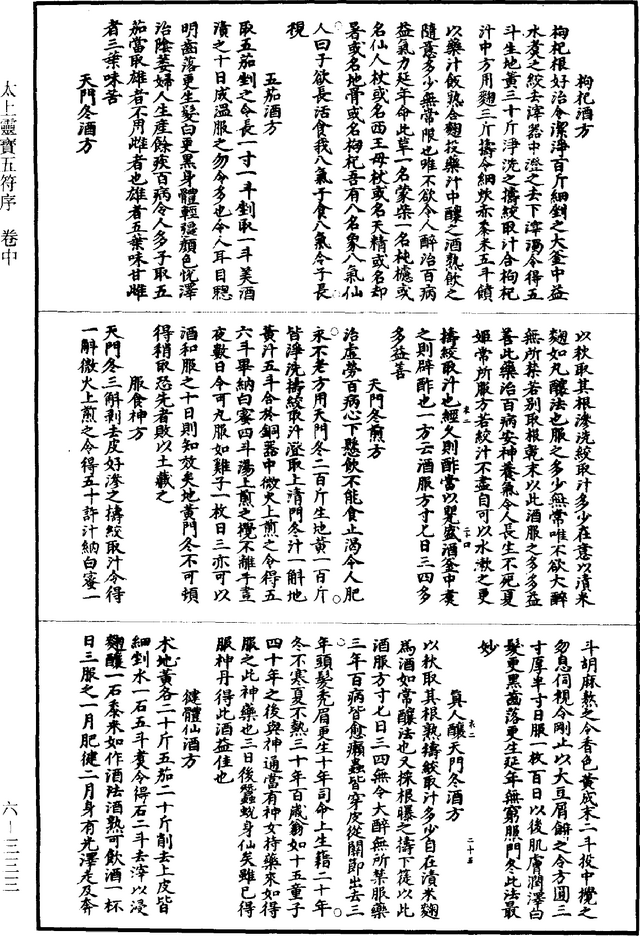 太上靈寶五符序　卷中
六—三三三
枸杞酒方
枸杞根好治令潔淨百斤細剉之大釜中益
水煮之絞去滓器中澄之去下滓濁令得五
斗生地黃三十斤淨洗之擣絞取汁合枸杞
汁中方用麴三斤擣令細炊赤黍米五斗饙
以藥汁飯熟合麴投藥汁中釀之酒熟飲之
隨意多少無常服也唯不欲令人醉治百病
益氣力延年命此草一名蒙柴一名杔櫨或
名仙人杖或名西王母杖或名天精或名却
暑或名地骨或名枸杞吾有八名象八氣仙
人曰子欲長活食我八氣子食八氣令子長
視
五茄酒方
取五茄剉之令長一寸一斗剉取一斗美酒
漬之十日成溫服之勿令多也令人耳目聰
明齒落更生髮白更黑身體輕強顏色悅澤
治陰萎婦人生產餘疾百病令人多子取五
茄當取雄者不用雌者也雄者五葉味甘雌
者三葉味苦
天門冬酒方
以秋取其根滲洗絞取汁多少在意以漬米
麴如丸釀法也服之多少無常唯不欲大醉
無所禁若別取根乾末以此酒服之多多益
善此藥治百病安神養氣令人長生不死夏
姬常所服方若絞汁不盡自可以水漱之更
擣絞取汁也經久則酢當以甖盛酒釜中煮
之則辟酢也一方云酒服方寸匕日三四多
多益善
天門冬煎方
治虛勞百病心下懸飲不能食止渴令人肥
永不老方用天門冬二百斤生地黃一百斤
皆淨洗擣絞取汁澄取上清門冬汁一斛地
黃汁五斗合於銅器中微火上煎之令得五
六斗畢納白蜜四斗湯上煎之攪不離手晝
夜數日令可丸服如雞子一枚日三亦可以
酒和服之十日則知效矣地黃門冬不可頓
得稍取恐先者敗以土藏之
服食神方
天門冬三斛剥去皮好滲之擣絞取汁令得
一斛微火上煎之令得五十許汁納白蜜一
斗胡麻熬之令香色黃成末二斗投中攪之
勿息伺視令剛止以大豆屑餅之令方圓三
寸厚半寸日服一枚百日以後肌膚潤澤白
髮更黑齒落更生延年無窮服門冬此法最
妙
真人釀天門冬酒方
以秋取其根熟擣絞取汁多少自在漬米麴
為酒如常釀法也又採根曝之擣下簁以此
酒服方寸匕日三四無令大醉無所禁服藥
三年百病皆愈癩蟲皆穿皮從關節出去三
年頭髮禿眉更生十年司命上生籍二十年
冬不寒夏不熱三十年百歲翁如十五童子
四十年之後與神通當有神女持藥來如得
服之此神藥也三日後蠶蛻身仙矣雖已得
服神丹得此酒益佳也
健體仙酒方
朮地黃各二十斤五茄二十斤削去上皮皆
細剉水一石五斗煮令得石二斗去滓以浸
麴釀一石黍米如作酒法酒熟可飲酒一杯
日三服之一月肥健二月身有光澤走及奔